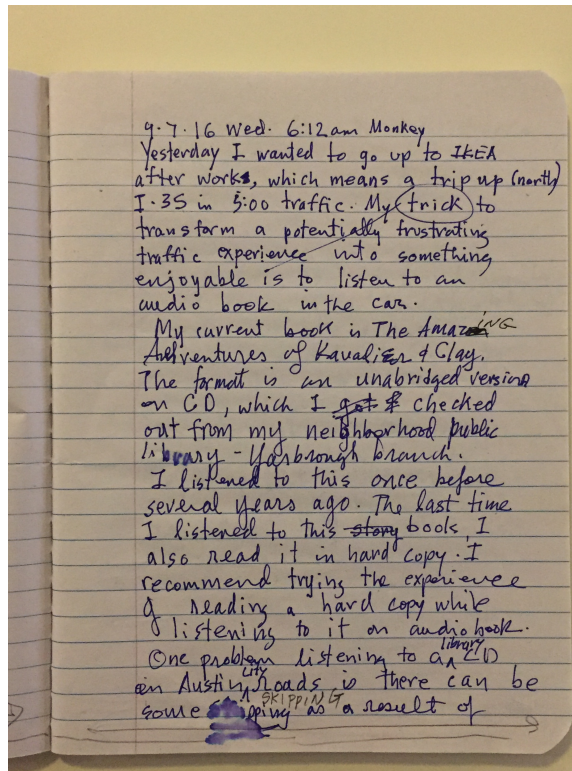 9.7.16 Wed. 6:12am Monkey
Yesterday I wanted to go up to IKEA
after works, which means a trip up (north)
I.35 in 5:00 traffic. My trick to
transform a potentially frustrating
traffic experience into something
enjoyable is to listen to an
audio book in the car.
My current book is The AmazING
Adventures of Kavalier & Clay.
The format is an unabridged version
on CD, which I got checked
out from my neighborhood public
library - Yarbrough branch.
I listened to this once before
several years ago. The last time
I listened to this story book, I
also read it in hard copy. I
recommend trying the experience
of reading a hard copy while
listening to it on audiobook.
One problem listening to a library CD
on Austin City Roads is there can be
some SKIPPING as a result of